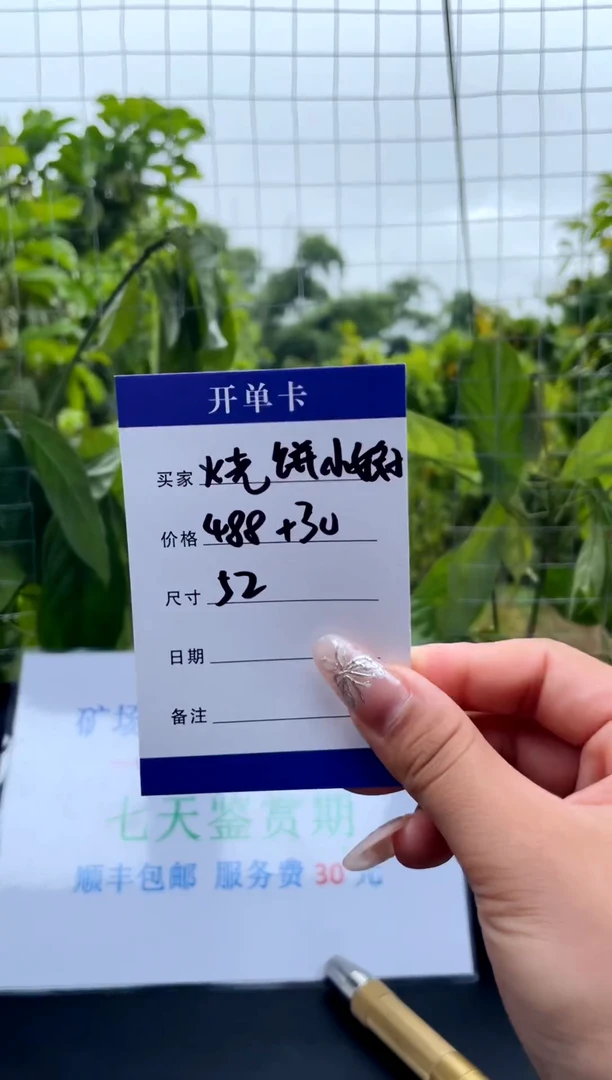 开单卡
买家 烧饼小
价格 488+30
尺寸 52
日期
备注
矿场
七天鉴赏期
顺丰包邮 服务费30元